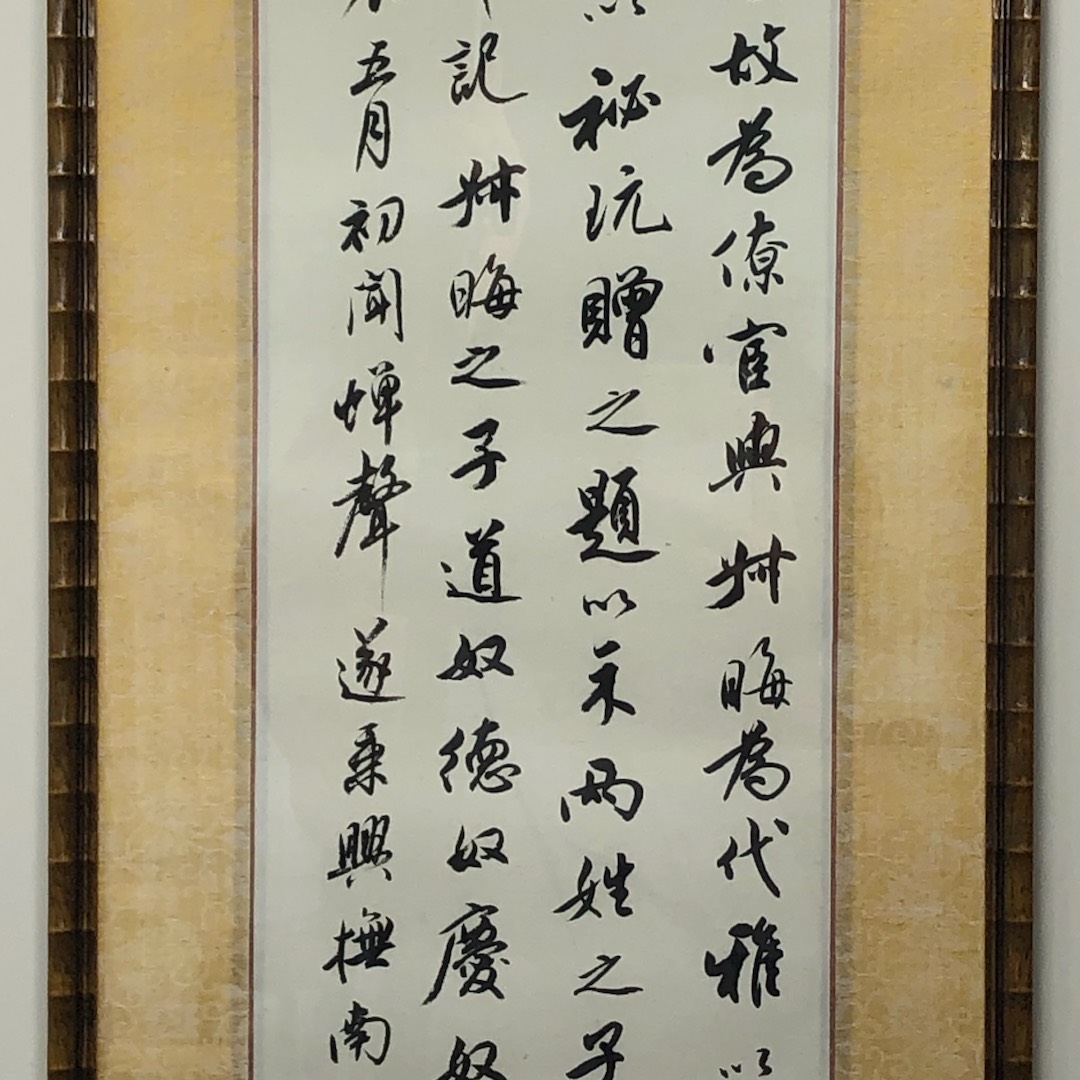 故為僚宦與叔晦為代雅以
以祕玩贈之題以示兩姓之子
記叔晦之子道奴德奴慶奴
五月初聞蟬聲遂乘興撫南